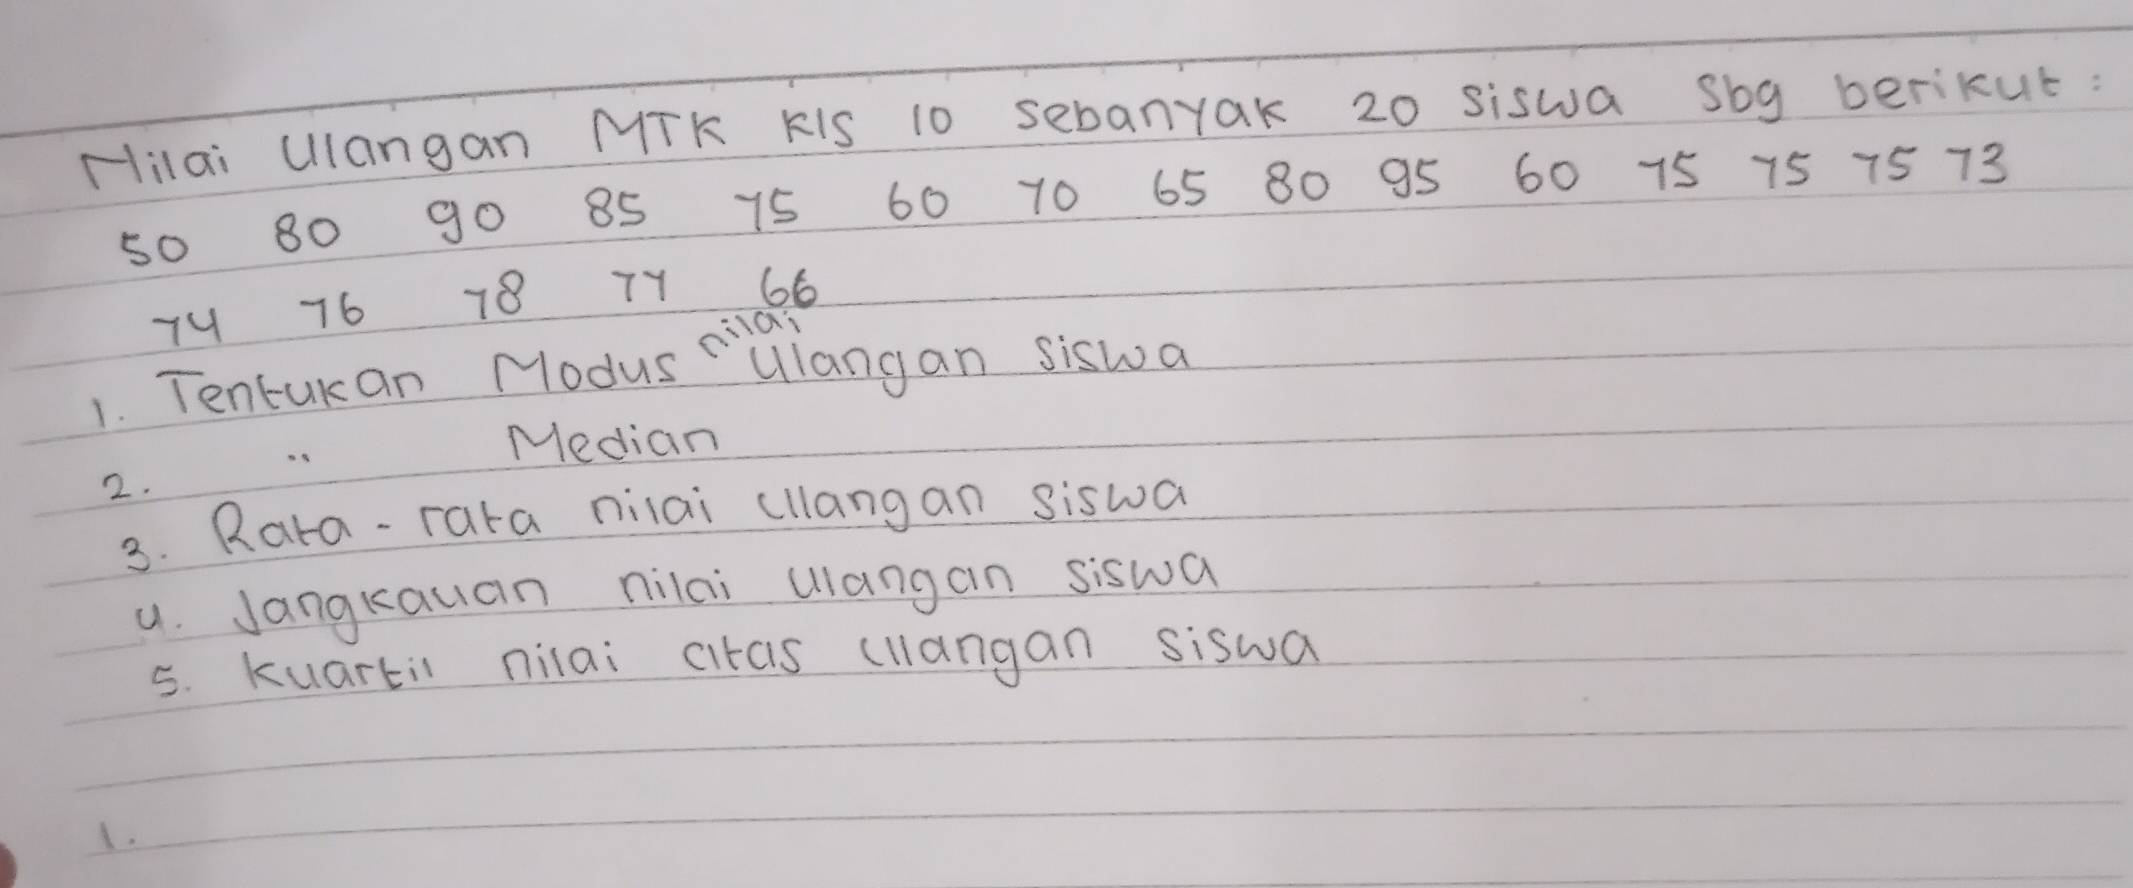 Nilai Ulangan MTK Kls 10 sebanyak 20 siswa sbg berikut :
50 80 90 85 75 60 70 65 80 95 60 75 75 75 73
74 76 78 77 66
1. Tentukan Modus nilai Ulangan siswa
2. " Median
3. Rata - rata nilai Ulangan siswa
4. Jangkauan nilai Ulangan siswa
5. Kuartil nilai atas Ulangan siswa
1.